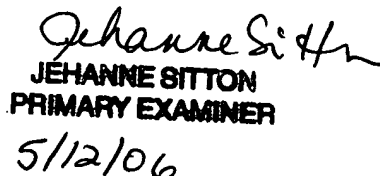 Jehanne Sitton
JEHANNE SITTON
PRIMARY EXAMINER
5/12/06